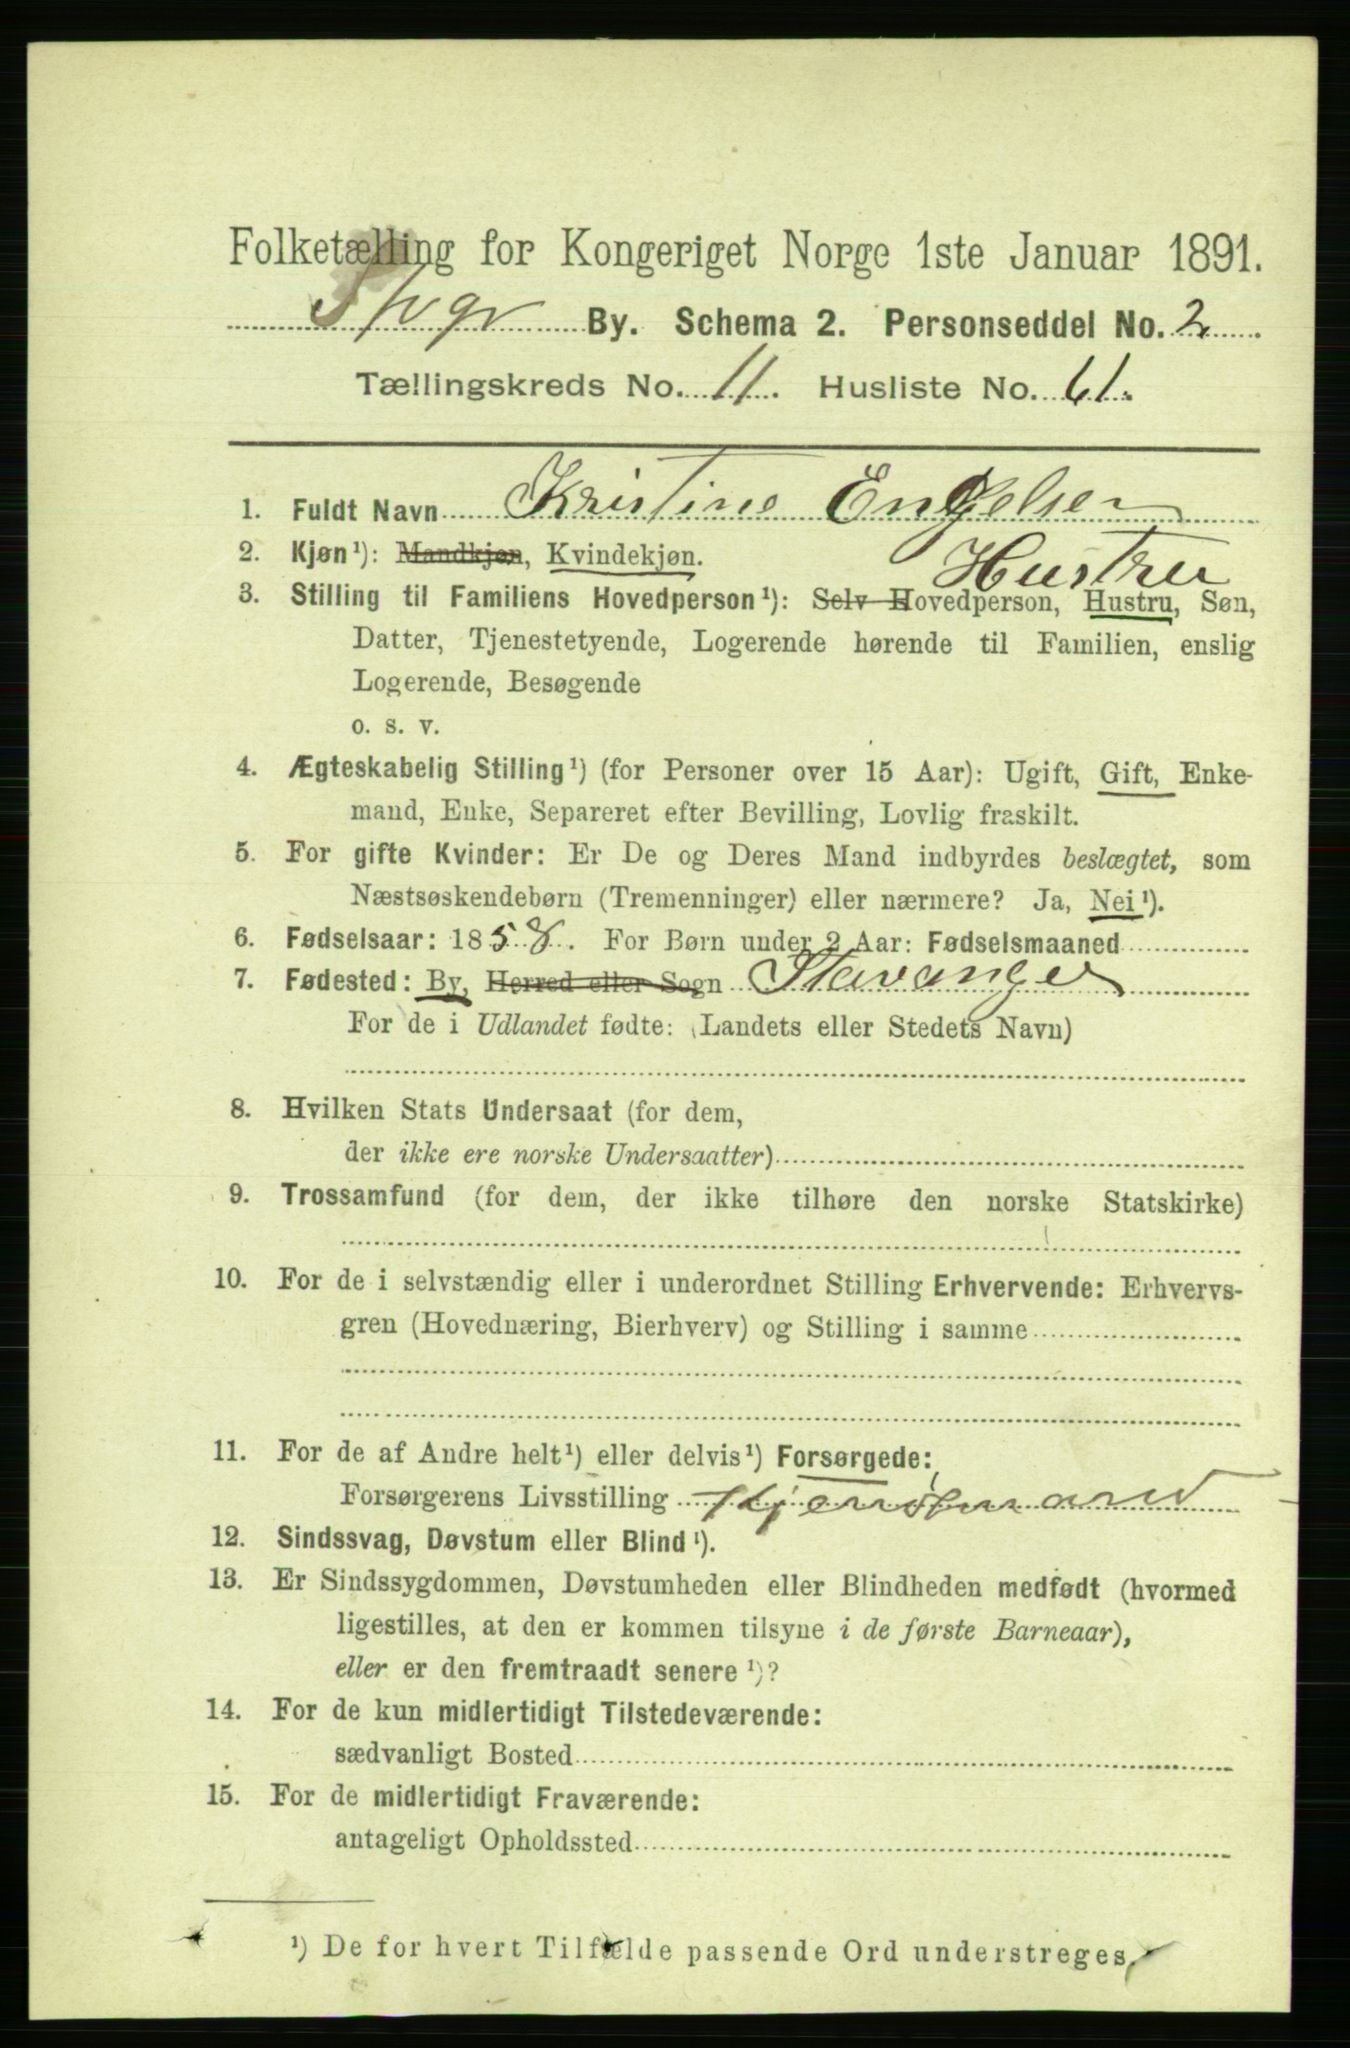 Folketælling for Kongeriget Norge 1ste Januar 1891.
Stvgr By. Schema 2. Personseddel No. 2
Tællingskreds No. 11. Husliste No. 61.
1. Fuldt Navn Kristine Engelsen
2. Kjøn¹): Mandkjøn, Kvindekjøn.
Hustru
3. Stilling til Familiens Hovedperson¹): Selv Hovedperson, Hustru, Søn,
Datter, Tjenestetyende, Logerende hørende til Familien, enslig
Logerende, Besøgende
o. s. v.
4. Ægteskabelig Stilling¹) (for Personer over 15 Aar): Ugift, Gift, Enke-
mand, Enke, Separeret efter Bevilling, Lovlig fraskilt.
5. For gifte Kvinder: Er De og Deres Mand indbyrdes beslægtet, som
Næstsøskendebørn (Tremenninger) eller nærmere? Ja, Nei¹).
6. Fødselsaar: 1858. For Børn under 2 Aar: Fødselsmaaned
7. Fødested: By, Herred eller Sogn Stavanger
For de i Udlandet fødte: (Landets eller Stedets Navn)
8. Hvilken Stats Undersaat (for dem,
der ikke ere norske Undersaatter)
9. Trossamfund (for dem, der ikke tilhøre den norske Statskirke)
10. For de i selvstændig eller i underordnet Stilling Erhvervende: Erhvervs-
gren (Hovednæring, Bierhverv) og Stilling i samme
11. For de af Andre helt¹) eller delvis¹) Forsørgede:
Forsørgerens Livsstilling
12. Sindssvag, Døvstum eller Blind¹).
13. Er Sindssygdommen, Døvstumheden eller Blindheden medfødt (hvormed
ligestilles, at den er kommen tilsyne i de første Barneaar),
eller er den fremtraadt senere¹)?
14. For de kun midlertidigt Tilstedeværende:
sædvanligt Bosted
15. For de midlertidigt Fraværende:
antageligt Opholdssted
¹) De for hvert Tilfælde passende Ord understreges.